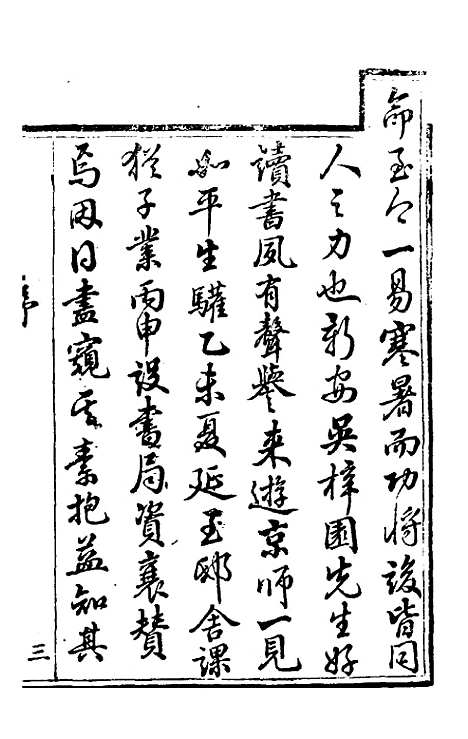 命至今一易寒暑而功將竣皆同
人之力也新安吳梓園先生好
讀書夙有聲譽來遊京師一見
如平生驩乙未夏延至邸舍課
猶子業丙申設書局資襄贊
焉因日盡窺其素抱益知其
序
三